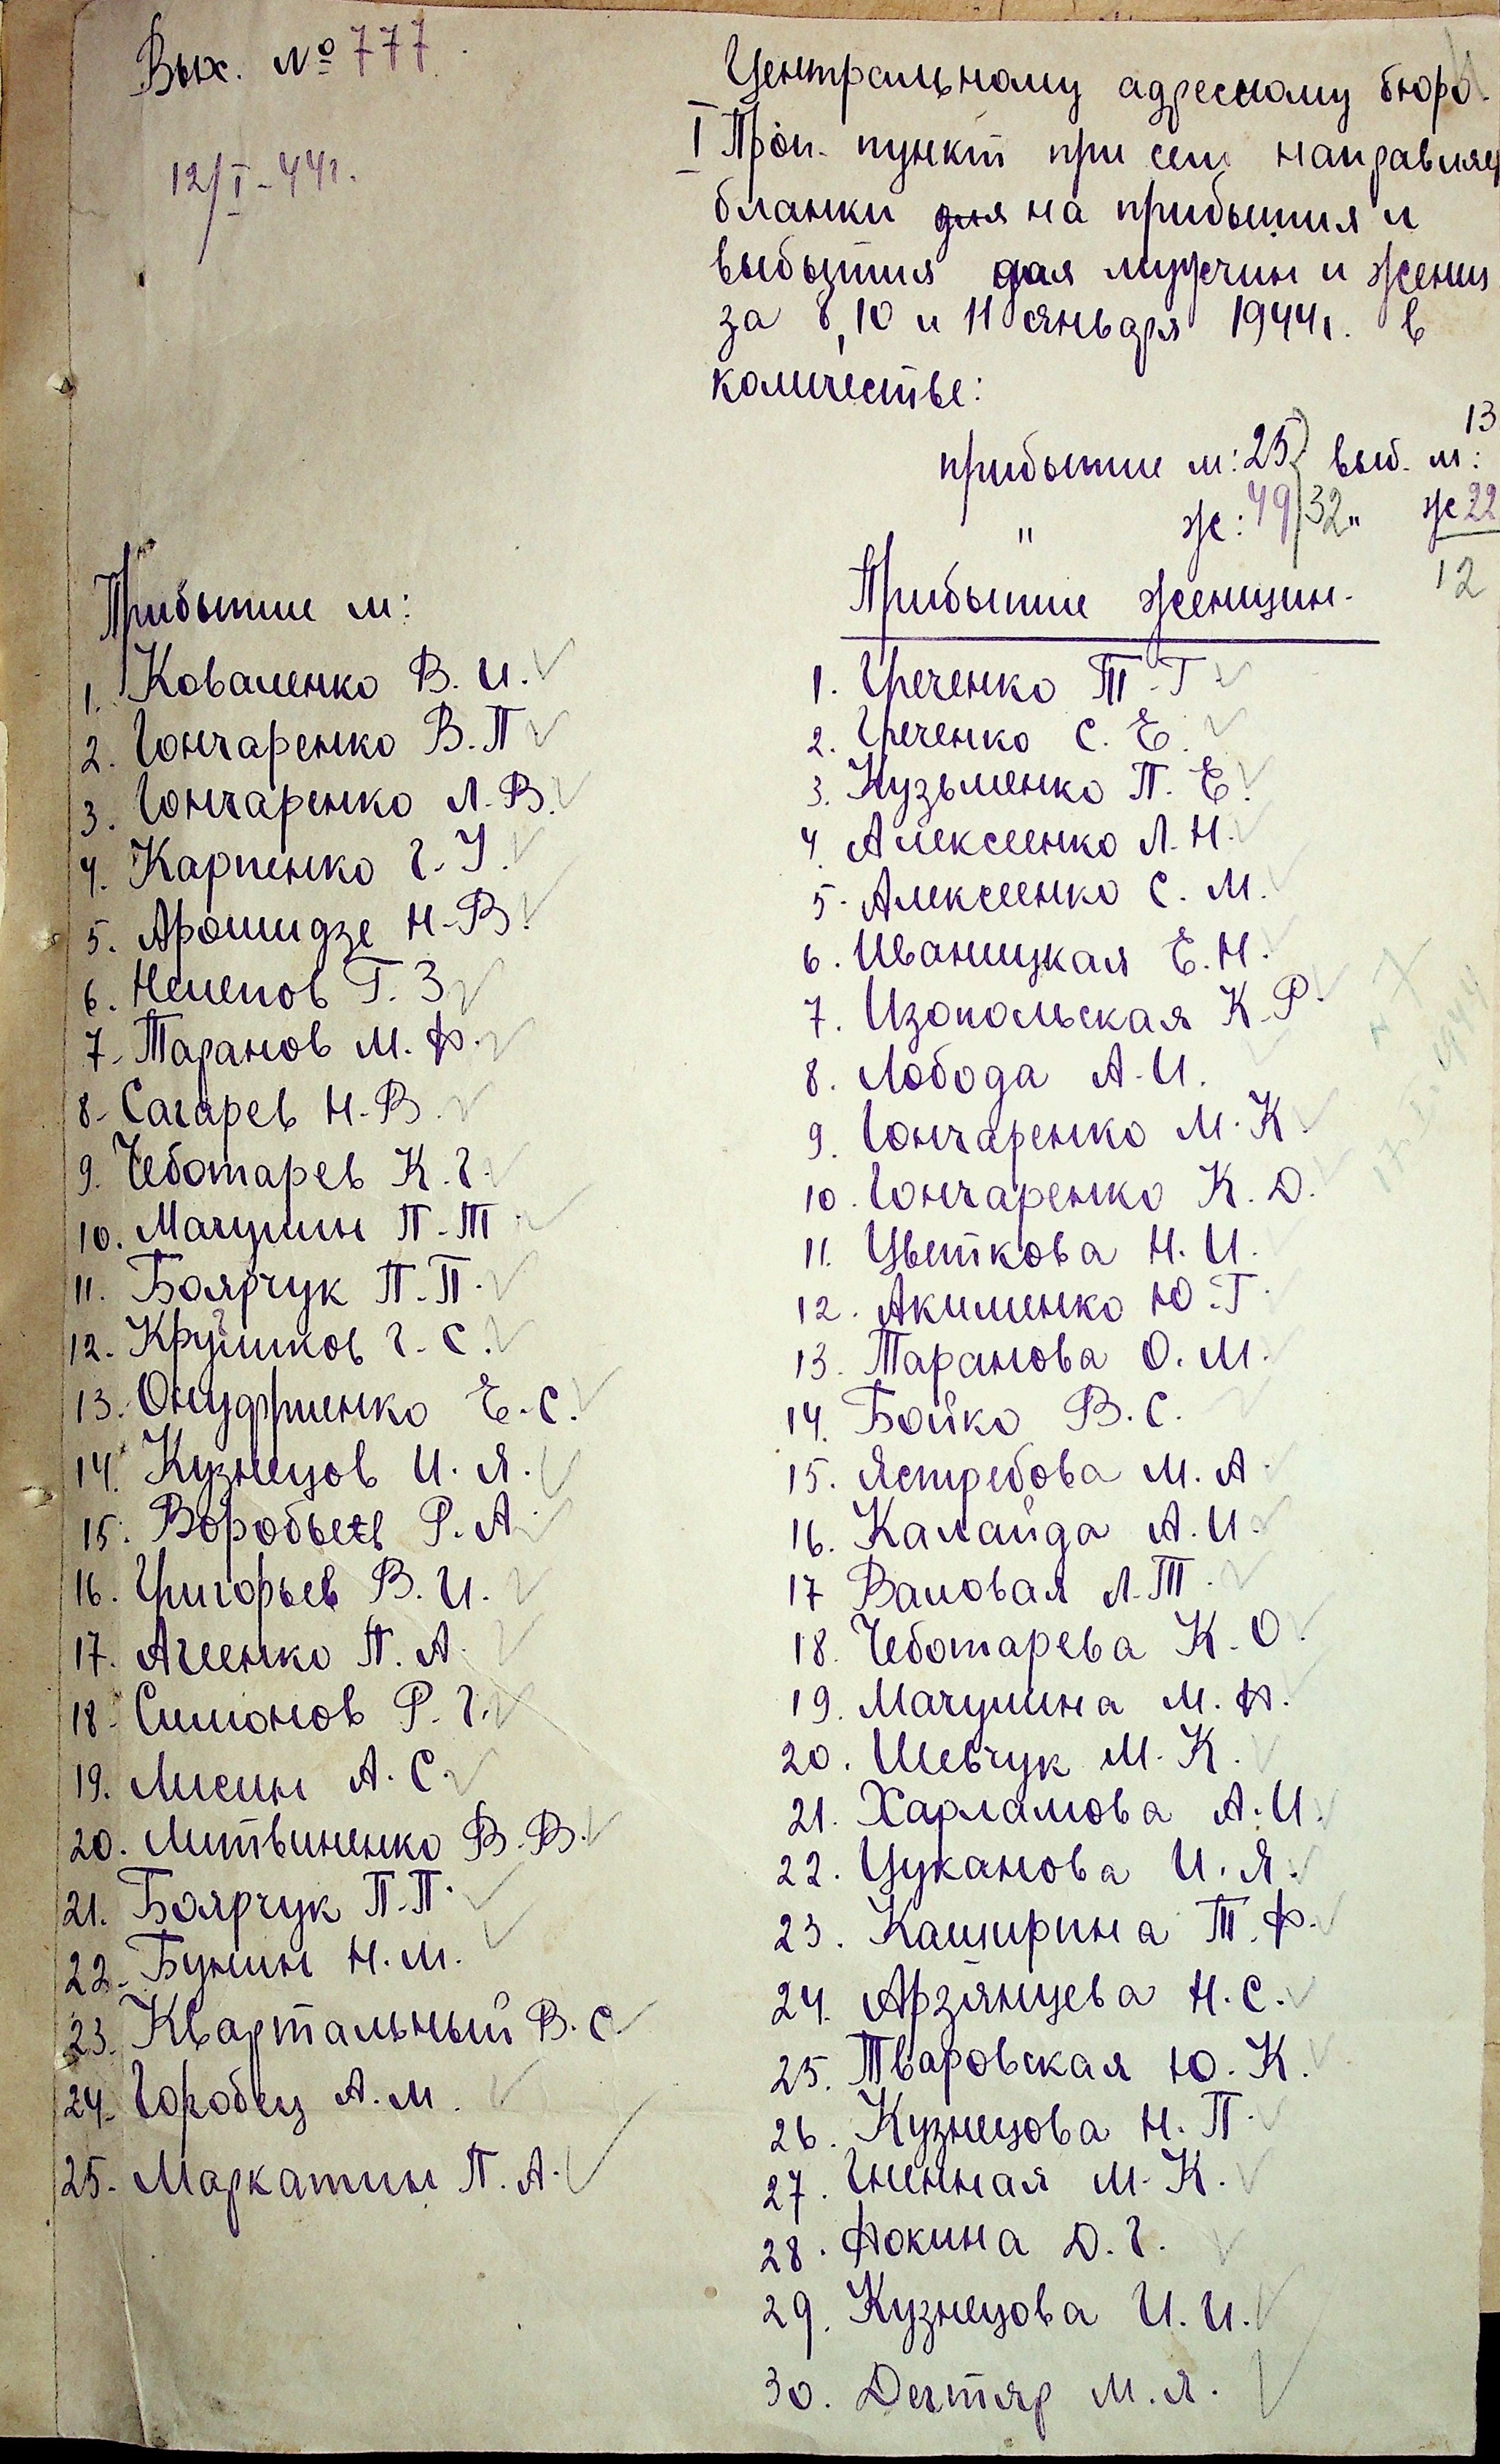 Вых. № 777.
12/I-44г.
Центральному адресному бюро.
I Проп. пункт при сем направляе
бланки для на прибытия и
выбытия для мужчин и женщ
за 8, 10 и 11 января 1944г. в
количестве:
прибытие м: 25 выб. м: 13
" ж: 49 32 " ж 22
12
Прибытие м:
1. Коваленко В. И.
2. Гончаренко В. П
3. Гончаренко Л. В.
4. Карпенко Г. У.
5. Арошидзе Н. В.
6. Немепов Г. З
7. Таранов М. Ф.
8. Сагарев Н. В.
9. Чеботарев К. Г.
10. Мачулин П. Т
11. Боярчук П. П.
12. Крушков Г. С.
13. Онуфриенко Е. С.
14. Кузнецов И. Я.
15. Воробьев Р. А.
16. Григорьев В. И.
17. Агеенко П. А.
18. Симонов Р. Г.
19. Лисин А. С.
20. Литвиненко В. В.
21. Боярчук П. П.
22. Бунин Н. М.
23. Квартальный В. С
24. Горобец А. М.
25. Маркатин П. А.
Прибытие женщин.
1. Греченко Т. Г
2. Греченко С. Е.
3. Кузьменко П. Е.
4. Алексеенко Л. Н.
5. Алексеенко С. М.
6. Иваницкая Е. Н.
7. Изопольская К. Р.
8. Лобода А. И.
9. Гончаренко М. К.
10. Гончаренко К. Д.
11. Цветкова Н. И.
12. Акименко Ю. Г.
13. Таранова О. М.
14. Бойко В. С.
15. Ястребова М. А.
16. Калайда А. И.
17 Валовая Л. Т.
18. Чеботарева К. О.
19. Мачулина М. Ф.
20. Шевчук М. К.
21. Харламова А. И.
22. Цуканова И. Я.
23. Каширина Т. Ф.
24. Арзянцева Н. С.
25. Тваровская Ю. К.
26. Кузнецова Н. П.
27. Гненная М. К.
28. Фокина Д. Г.
29. Кузнецова И. И.
30. Дегтяр М. Я.